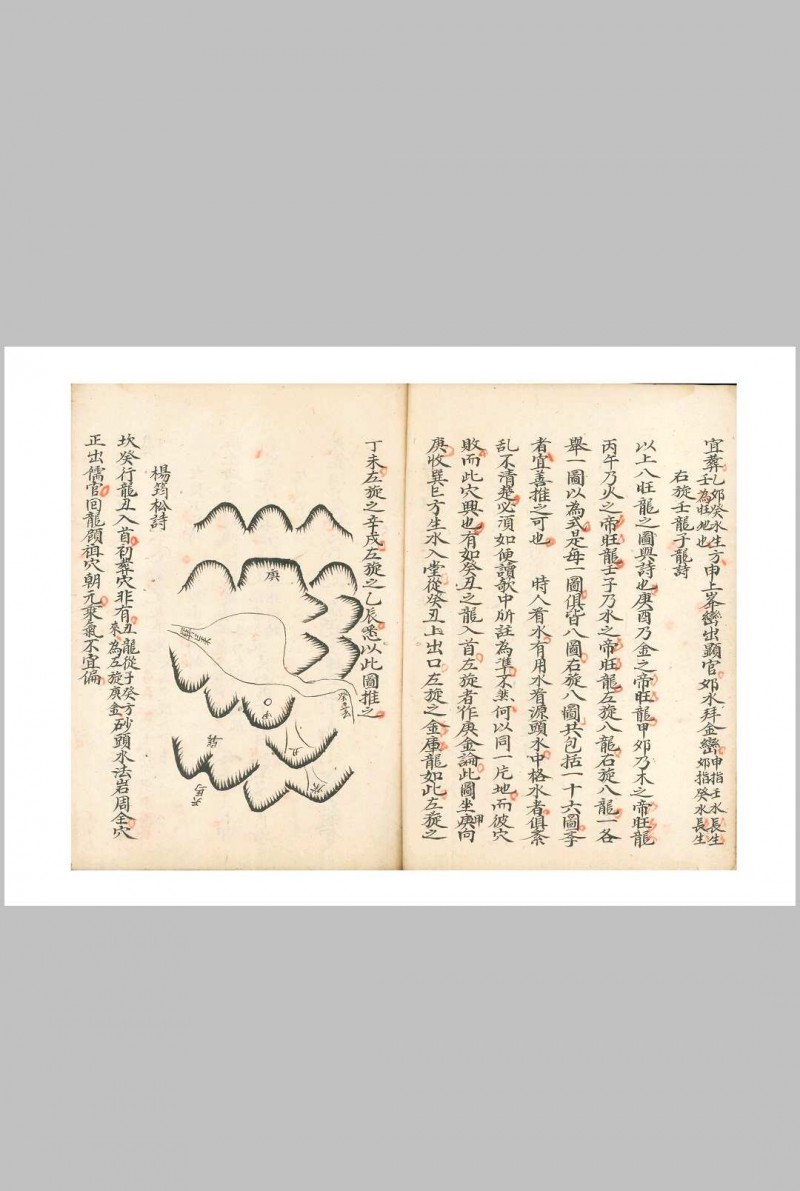 宜葬乙卯癸水生方申上峯巒出顯官卯水拜金巒申指壬水長生
壬為旺地也卯指癸水長生
右旋壬龍子龍詩
以上八旺龍之圖與詩也庚酉乃金之帝旺龍甲卯乃木之帝旺龍
丙午乃火之帝旺龍壬子乃水之帝旺龍左旋八龍右旋八龍一各
舉一圖以為式是每一圖俱皆八圖右旋八圖共包括一十六圖李
者宜善推之可也　時人看水有用水看源頭水中格水者俱紊
乱不清楚必須如使讀歌中所註為準不然何以同一片地而彼穴
敗而此穴興也有如癸丑之龍入首左旋者作庚金論此圖坐庚向甲
庚收巽巳方生水入堂從癸丑上出口左旋之金庫龍如此左旋之
丁未左旋之辛戌左旋之乙辰悉以此圖推之
庚
丑
楊筠松詩
坎癸行龍丑入首初葬穴非有丑龍從子癸方來為左旋庚金砂頭水法岩周全穴
正出儒官回龍顧祖穴朝元乘氣不宜偏